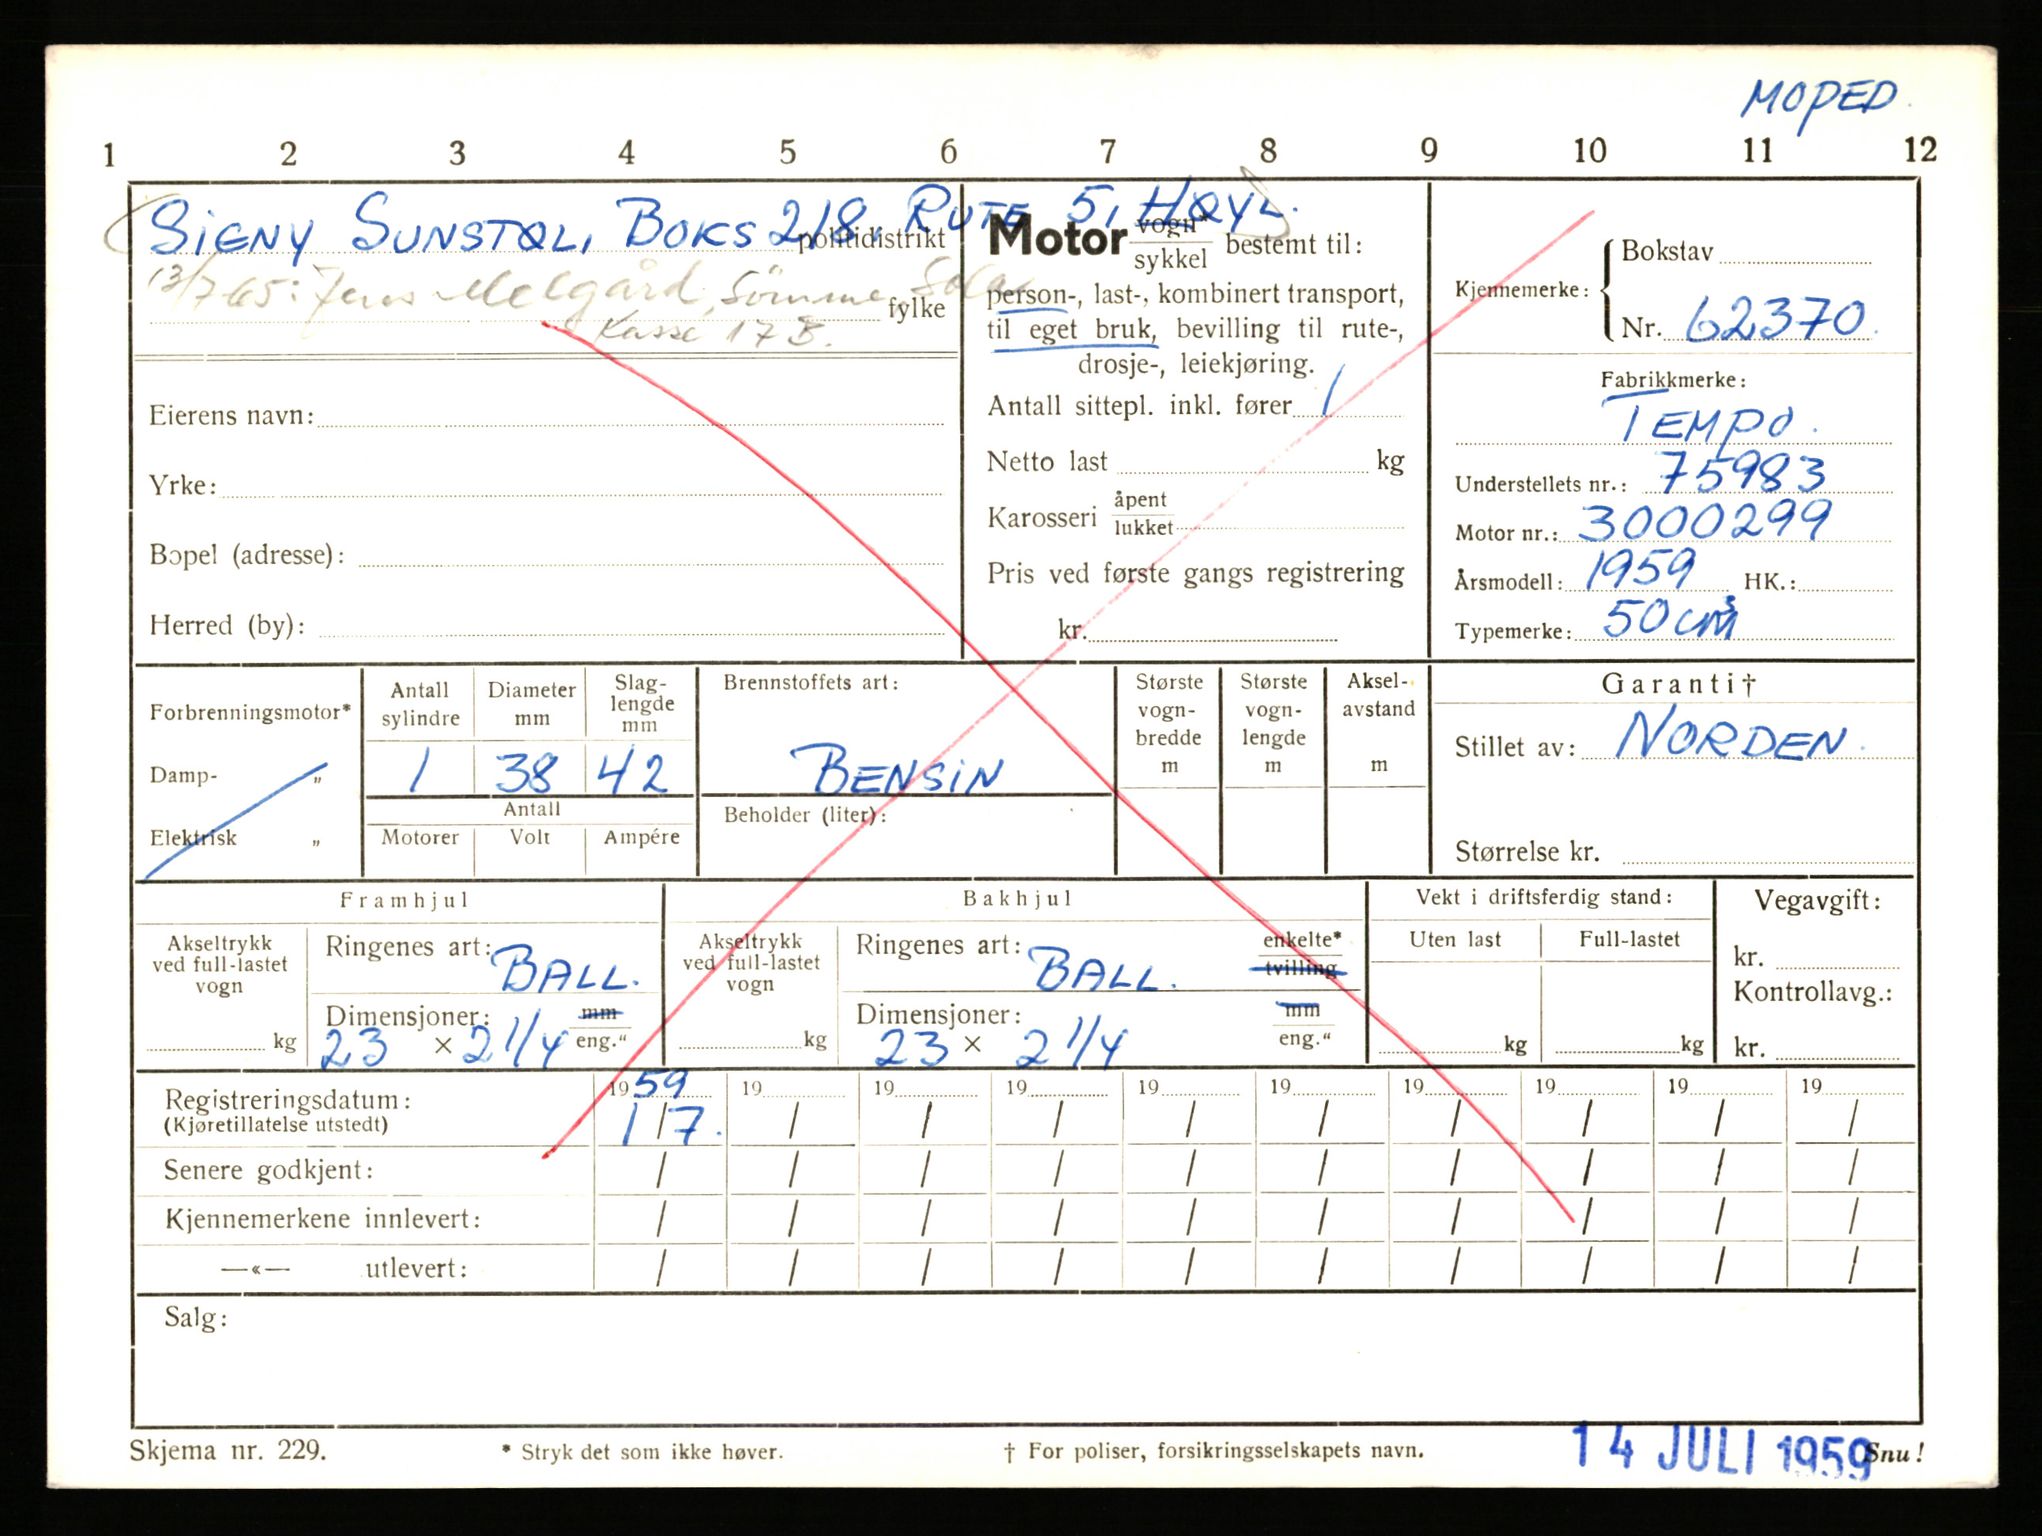 MOPED.
1 2 3 4 5 6 7 8 9 10 11 12
SIGNY SUNSTØL, BOKS 218, RUTE 5, HØYL.
politidistrikt
13/7 65: Jens Melgård, Sömme, Sola
fylke
Kasse 17 B.
Eierens navn:
Yrke:
Bopel (adresse):
Herred (by):
Motor vogn* sykkel bestemt til:
person-, last-, kombinert transport,
til eget bruk, bevilling til rute-,
drosje-, leiekjøring.
Antall sittepl. inkl. fører 1
Netto last kg
Karosseri åpent lukket
Pris ved første gangs registrering
kr.
Kjennemerke: Bokstav
Nr. 62370.
Fabrikkmerke:
TEMPO.
Understellets nr.: 75983
Motor nr.: 3000299
Årsmodell: 1959 HK.:
Typemerke: 50 cm³
Forbrenningsmotor*
Damp- „
Elektrisk „
Antall sylindre
Diameter mm
Slag-
lengde
mm
1 38 42
Antall
Motorer Volt Ampére
Brennstoffets art:
BENSIN
Beholder (liter):
Største
vogn-
bredde
m
Største
vogn-
lengde
m
Aksel-
avstand
m
Garanti†
Stillet av: NORDEN.
Størrelse kr.
Framhjul
Akseltrykk
ved full-lastet
vogn
kg
Ringenes art: BALL.
Dimensjoner: mm
23 × 2 1/4 eng."
Bakhjul
Akseltrykk
ved full-lastet
vogn
kg
Ringenes art: BALL. enkelte* tvilling
Dimensjoner: mm
23 × 2 1/4 eng."
Vekt i driftsferdig stand:
Uten last Full-lastet
kg kg
Vegavgift:
kr.
Kontrollavg.:
kr.
1959 19 19 19 19 19 19 19 19 19
Registreringsdatum: 1/7. / / / / / / / / /
(Kjøretillatelse utstedt)
Senere godkjent: / / / / / / / / / /
Kjennemerkene innlevert: / / / / / / / / / /
—«— utlevert: / / / / / / / / / /
Salg:
Skjema nr. 229. * Stryk det som ikke høver. † For poliser, forsikringsselskapets navn. 14 JULI 1959 Snu!